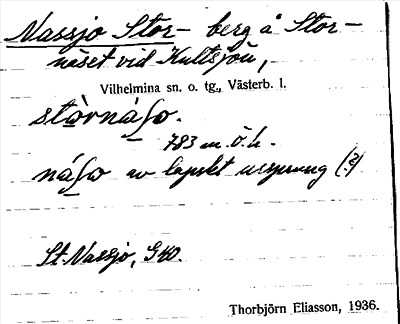 Nassjo Stor- berg å Stor-
näset vid Kultsjön,
Vilhelmina sn. o. tg., Västerb. l.
stòrnáʃo.
783 m. ö. h.
náʃo av lapskt ursprung (?)
St. Nassjo, G 40.
Thorbjörn Eliasson, 1936.